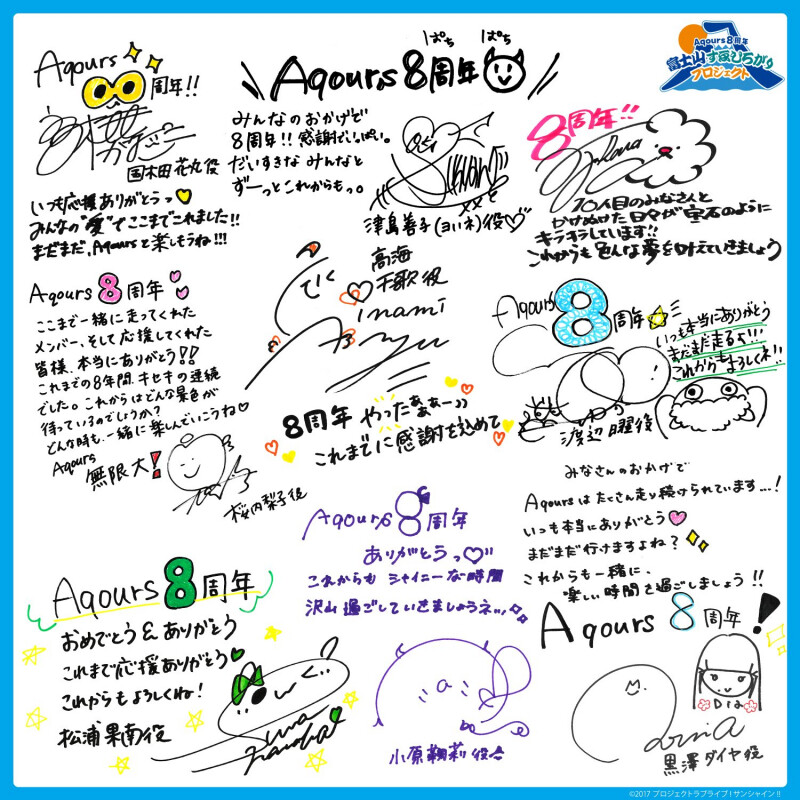 Aqours 8周年
富士山すそ広がり
プロジェクト
Aqours
8周年!!
国木田 花丸役
いつも応援ありがとうっ♥
みんなの"愛"でここまでこれました!!
まだまだ、Aqoursと楽しもうね!!!
ぱち ぱち
Aqours 8周年
みんなのおかげで
8周年!!感謝でいっぱい。
だいすきな みんなと
ずーっとこれからもっ。
津島善子(ヨハネ)役♡
8周年!!
10人目のみなさんと
かけぬけた日々が宝石のように
キラキラしています!!
これからも色んな夢を叶えていきましょう
Aqours 8周年
ここまで一緒に走ってくれた
メンバー、そして応援してくれた
皆様、本当にありがとう!!
これまでの8年間、キセキの連続
でした。これからはどんな景色が
待っているのでしょうか?
どんな時も一緒に楽しんでいこうね♡
Aqours
無限大!
桜内梨子役
高海
千歌役
inami
Anju
8周年 やったぁぁぁー))
これまでに感謝を込めて
Aqours 8周年
いつも本当にありがとう
まだまだ走るよ!!!
これからもよろしくネ!!
渡辺 曜役
みなさんのおかげで
Aqoursはたくさん走り続けられています…!
いつも本当にありがとう♥
まだまだ行けますよね?
これからも一緒に、
楽しい時間を過ごしましょう!!
Aqours 8周年!
Dia
黒澤ダイヤ役
Aqours 8周年
ありがとうっ♡
これからも シャイニーな時間
沢山過ごしていきましょうネッ
小原鞠莉役
Aqours 8周年
おめでとう&ありがとう
これまで応援ありがとう♥
これからもよろしくね!
松浦果南役
Suwa
Nanaka
©2017 プロジェクトラブライブ!サンシャイン!!